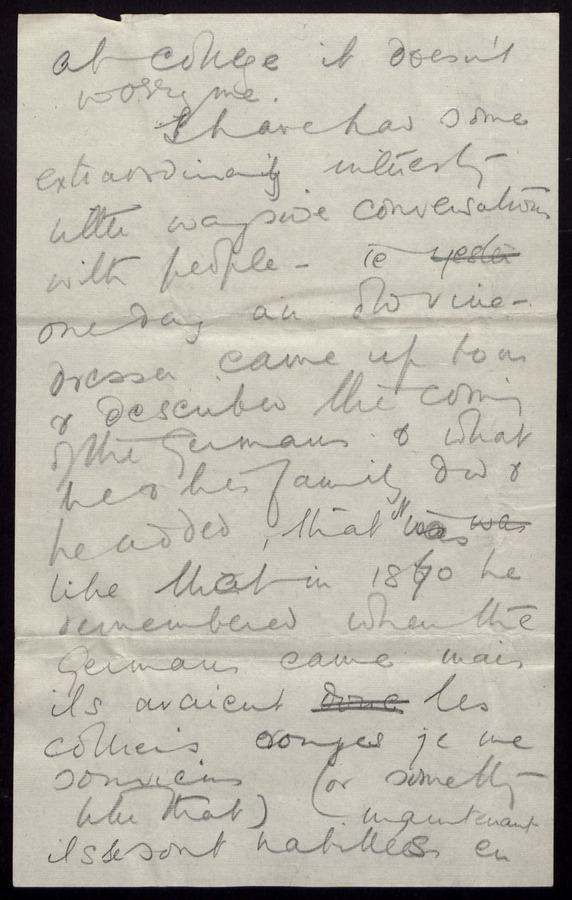 at college it doesn't
worry me.
I have had some
extraordinarily interestg
little wayside conversations
with people - ie yester
one day an old vine-
dresser came up to us
& described the coming
of the Germans & what
he & his family did &
he added, that "was was
like that in 1870 he
remembered when the
Germans came mais
ils avaient donc les
colliers rouges je me
souviens (or somethg
like that) maintenant
ils se sont habillés en